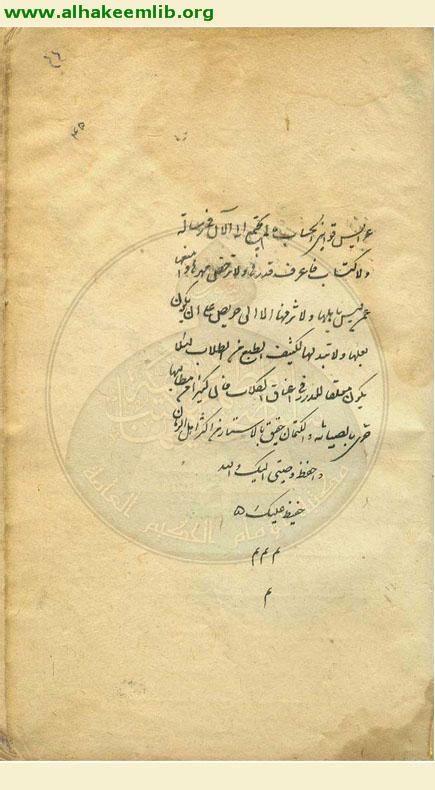 www.alhakeemlib.org
عرايس قوانين الحساب ما لم يجتمع الى الآن في رسالة
ولا كتاب فاعرف قدرها ولا ترخص مهرها وامنعها
عمن ليس باهلها ولا تزفها الا الى حريص على ان يكون
بعلها ولا تبذلها لكثيف الطبع من الطلاب لئلا
يكون معلقا للدرر في اعناق الكلاب فان كثيرا من مطالبها
حرى بالصيانة والكتمان حقيق بالاستتار عن اكثر اهل الزمان
فاحفظ وصيتي اليك والله
حفيظ عليك
م م م
م